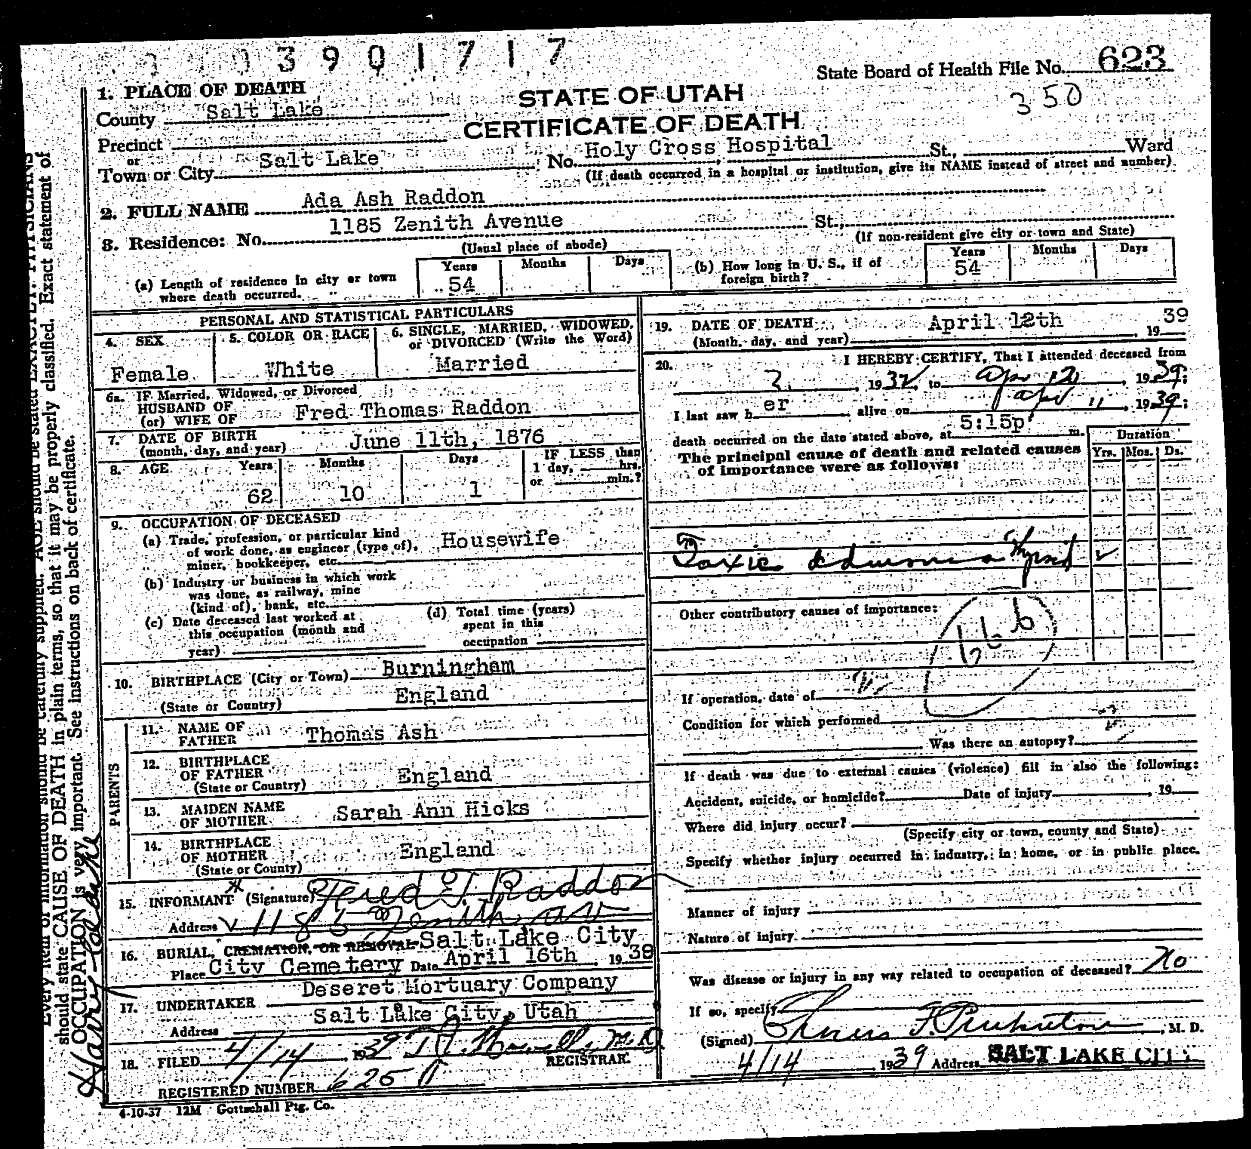 3901717
State Board of Health File No. 623
350
1. PLACE OF DEATH
STATE OF UTAH
CERTIFICATE OF DEATH
County Salt Lake
Precinct
or
Town or City Salt Lake No. Holy Cross Hospital St., Ward
(If death occurred in a hospital or institution, give its NAME instead of street and number)
2. FULL NAME Ada Ash Raddon
3. Residence: No. 1185 Zenith Avenue St.,
(Usual place of abode) (If non-resident give city or town and State)
(a) Length of residence in city or town where death occurred. Years 54 Months Days
(b) How long in U. S., if of foreign birth? Years 54 Months Days
PERSONAL AND STATISTICAL PARTICULARS
4. SEX Female
5. COLOR OR RACE White
6. SINGLE, MARRIED, WIDOWED, or DIVORCED (Write the Word) Married
6a. IF Married, Widowed, or Divorced
HUSBAND OF
(or) WIFE OF Fred Thomas Raddon
7. DATE OF BIRTH
(month, day, and year) June 11th, 1876
8. AGE Years 62 Months 10 Days 1 IF LESS than 1 day, hrs. or min.?
9. OCCUPATION OF DECEASED
(a) Trade, profession, or particular kind of work done, as engineer (type of), miner, bookkeeper, etc. Housewife
(b) Industry or business in which work was done, as railway, mine (kind of), bank, etc.
(c) Date deceased last worked at this occupation (month and year)
(d) Total time (years) spent in this occupation
10. BIRTHPLACE (City or Town) Burningham
(State or Country) England
PARENTS
11. NAME OF FATHER Thomas Ash
12. BIRTHPLACE OF FATHER (State or Country) England
13. MAIDEN NAME OF MOTHER Sarah Ann Hicks
14. BIRTHPLACE OF MOTHER (State or Country) England
15. INFORMANT (Signature) Fred T. Raddon
Address 1185 Zenith av
16. BURIAL, CREMATION, OR REMOVAL Salt Lake City
Place City Cemetery Date April 16th 1939
17. UNDERTAKER Deseret Mortuary Company
Address Salt Lake City, Utah
18. FILED 4/14 1939 REGISTRAR
REGISTERED NUMBER 625
4-10-37 12M Gottschall Ptg. Co.
19. DATE OF DEATH April 12th 1939
(Month, day, and year)
20. I HEREBY CERTIFY, That I attended deceased from
1932, to apr 12, 1939;
I last saw her alive on apr 11, 1939;
death occurred on the date stated above, at 5:15p m.
The principal cause of death and related causes of importance were as follows:
Duration
Yrs. Mos. Ds.
Toxic adenoma Thyroid
Other contributory causes of importance:
66b
If operation, date of
Condition for which performed
Was there an autopsy?
If death was due to external causes (violence) fill in also the following:
Accident, suicide, or homicide? Date of injury 19
Where did injury occur?
(Specify city or town, county and State)
Specify whether injury occurred in industry, in home, or in public place.
Manner of injury
Nature of injury
Was disease or injury in any way related to occupation of deceased? No
If so, specify
(Signed) M. D.
4/14 1939 Address SALT LAKE CITY
Every item of information should be carefully supplied. AGE should be stated EXACTLY. PHYSICIANS
should state CAUSE OF DEATH in plain terms, so that it may be properly classified. Exact statement of
OCCUPATION is very important. See instructions on back of certificate.